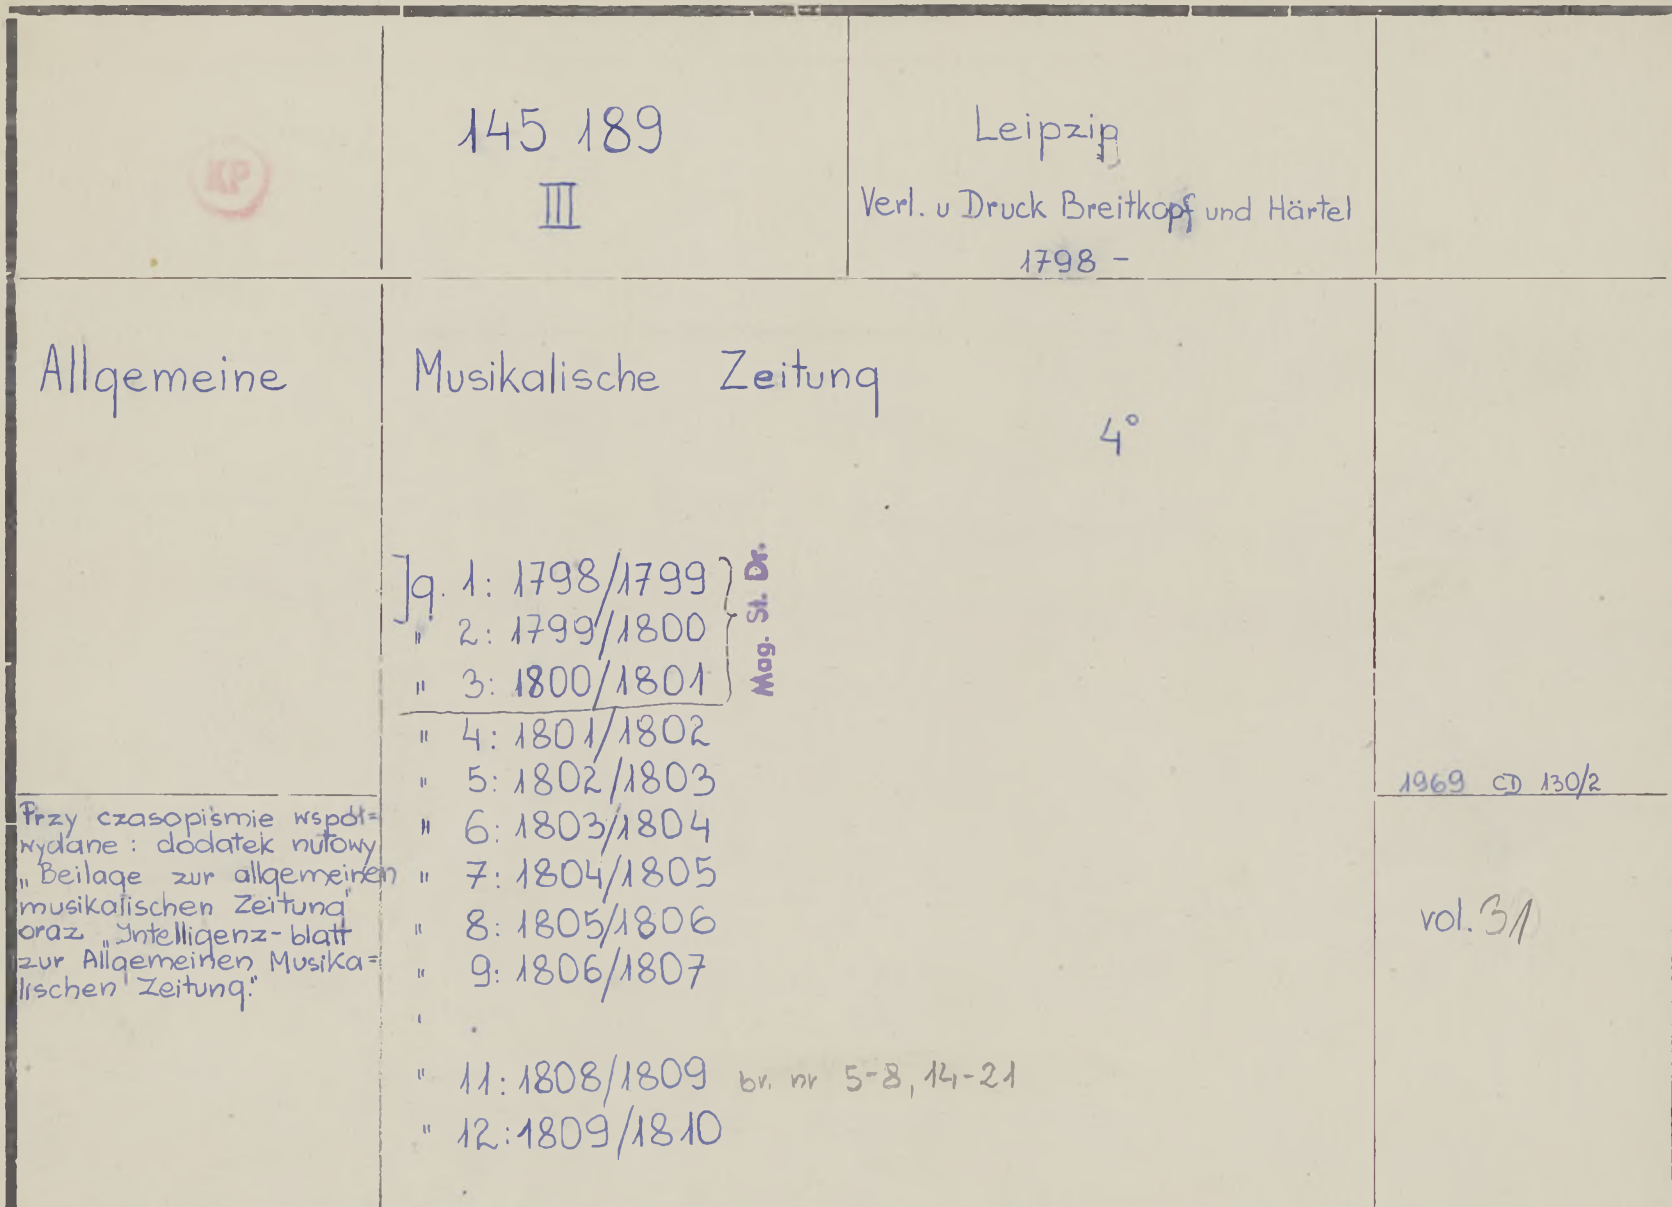 KP
145 189
III
Leipzig
Verl. u Druck Breitkopf und Härtel
1798 -
Allgemeine Musikalische Zeitung
4°
Jg. 1: 1798/1799
" 2: 1799/1800
" 3: 1800/1801
Mag. St. Dr.
" 4: 1801/1802
" 5: 1802/1803
" 6: 1803/1804
" 7: 1804/1805
" 8: 1805/1806
" 9: 1806/1807
" 11: 1808/1809 br. nr 5-8, 14-21
" 12: 1809/1810
Przy czasopiśmie współ=
wydane: dodatek nutowy
„Beilage zur allgemeinen
musikalischen Zeitung"
oraz „Intelligenz-blatt
zur Allgemeinen Musika=
lischen Zeitung."
1969 CD 130/2
vol. 31